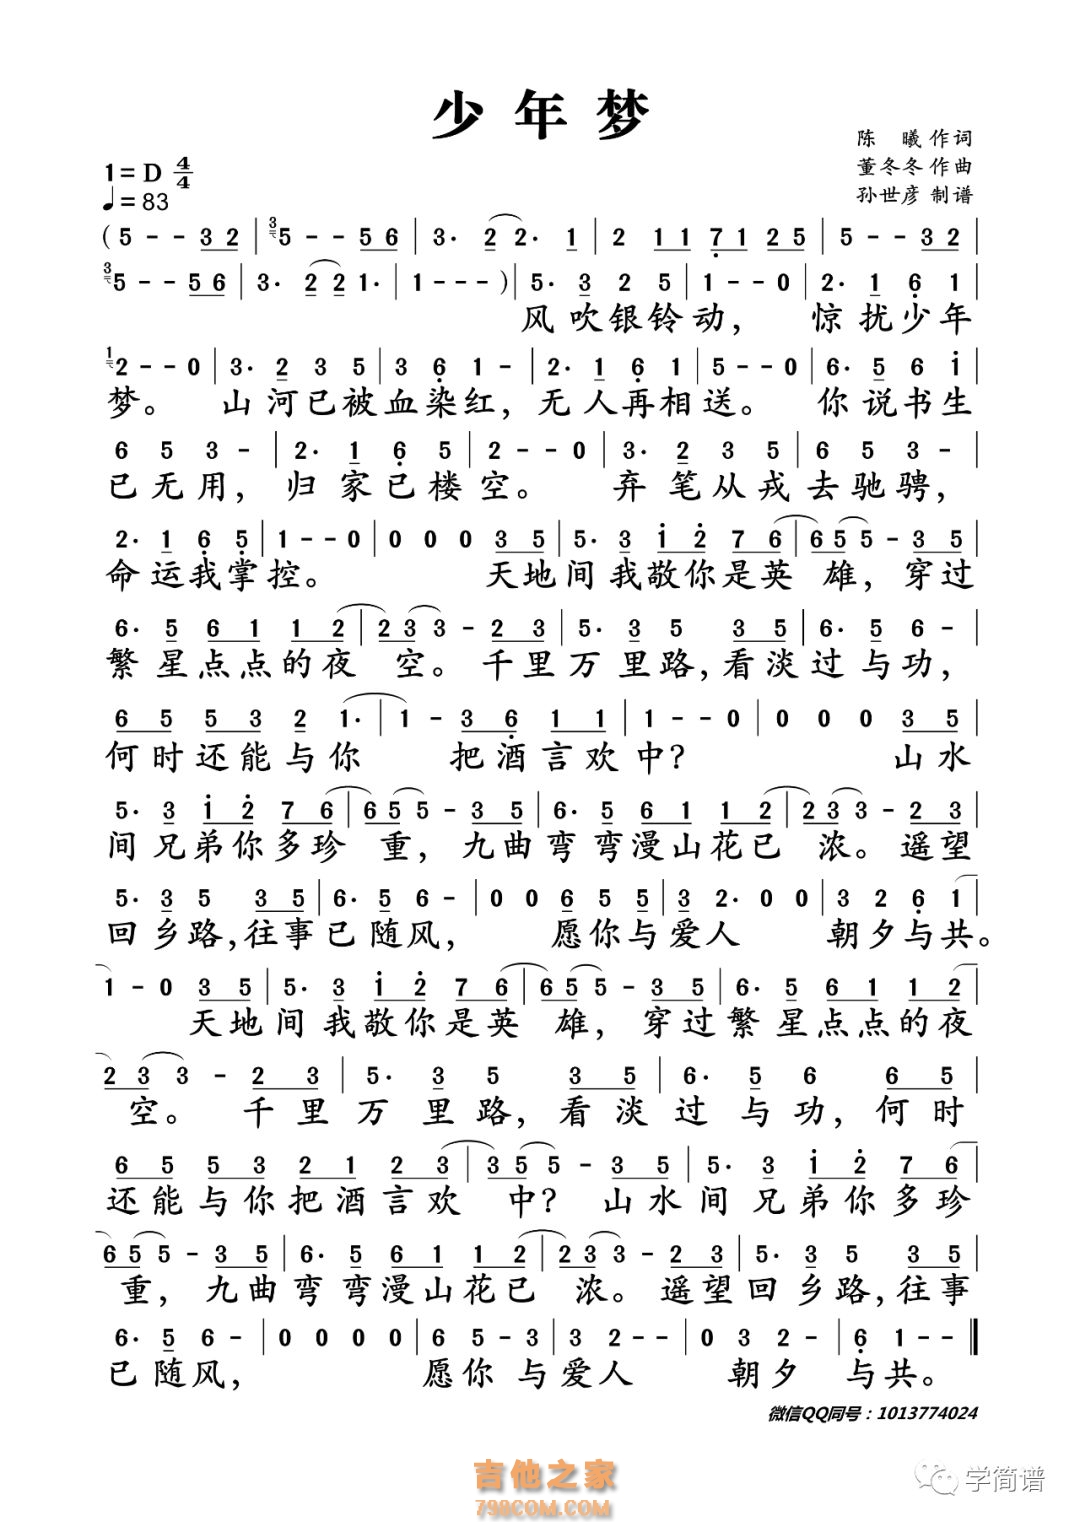 少年梦
陈 曦 作词
1=D 4/4
董冬冬 作曲
♩=83
孙世彦 制谱
(5 - - 3 2 | 3 5 - - 5 6 | 3· 2 2· 1 | 2 1 1 7 1 2 5 | 5 - - 3 2 |
3 5 - - 5 6 | 3· 2 2 1· | 1 - - -) | 5· 3 2 5 | 1 - - 0 | 2· 1 6 1 |
风吹银铃动， 惊扰少年
1 2 - - 0 | 3· 2 3 5 | 3 6 1 - | 2· 1 6 1 | 5 - - 0 | 6· 5 6 i |
梦。 山河已被血染红，无人再相送。 你说书生
6 5 3 - | 2· 1 6 5 | 2 - - 0 | 3· 2 3 5 | 6 5 3 - |
已无用， 归家已楼空。 弃笔从戎去驰骋，
2· 1 6 5 | 1 - - 0 | 0 0 0 3 5 | 5· 3 i 2 7 6 | 6 5 5 - 3 5 |
命运我掌控。 天地间我敬你是英 雄，穿过
6· 5 6 1 1 2 | 2 3 3 - 2 3 | 5· 3 5 3 5 | 6· 5 6 - |
繁星点点的夜 空。千里万里路，看淡过与功，
6 5 5 3 2 1· | 1 - 3 6 1 1 | 1 - - 0 | 0 0 0 3 5 |
何时还能与你 把酒言欢中？ 山水
5· 3 i 2 7 6 | 6 5 5 - 3 5 | 6· 5 6 1 1 2 | 2 3 3 - 2 3 |
间兄弟你多珍 重，九曲弯弯漫山花已 浓。遥望
5· 3 5 3 5 | 6· 5 6 - | 0 0 6 5 5 | 3 2· 0 0 | 3 2 6 1 |
回乡路，往事已随风， 愿你与爱人 朝夕与共。
1 - 0 3 5 | 5· 3 i 2 7 6 | 6 5 5 - 3 5 | 6· 5 6 1 1 2 |
天地间我敬你是英 雄，穿过繁星点点的夜
2 3 3 - 2 3 | 5· 3 5 3 5 | 6· 5 6 6 5 |
空。 千里万里路，看淡过与功，何时
6 5 5 3 2 1 2 3 | 3 5 5 - 3 5 | 5· 3 i 2 7 6 |
还能与你把酒言欢 中？ 山水间兄弟你多珍
6 5 5 - 3 5 | 6· 5 6 1 1 2 | 2 3 3 - 2 3 | 5· 3 5 3 5 |
重，九曲弯弯漫山花已 浓。遥望回乡路，往事
6· 5 6 - | 0 0 0 0 | 6 5 - 3 | 3 2 - - | 0 3 2 - | 6 1 - - ‖
已随风， 愿你与爱人 朝夕与共。
微信QQ同号：1013774024
吉他之家
798COM.COM
学简谱